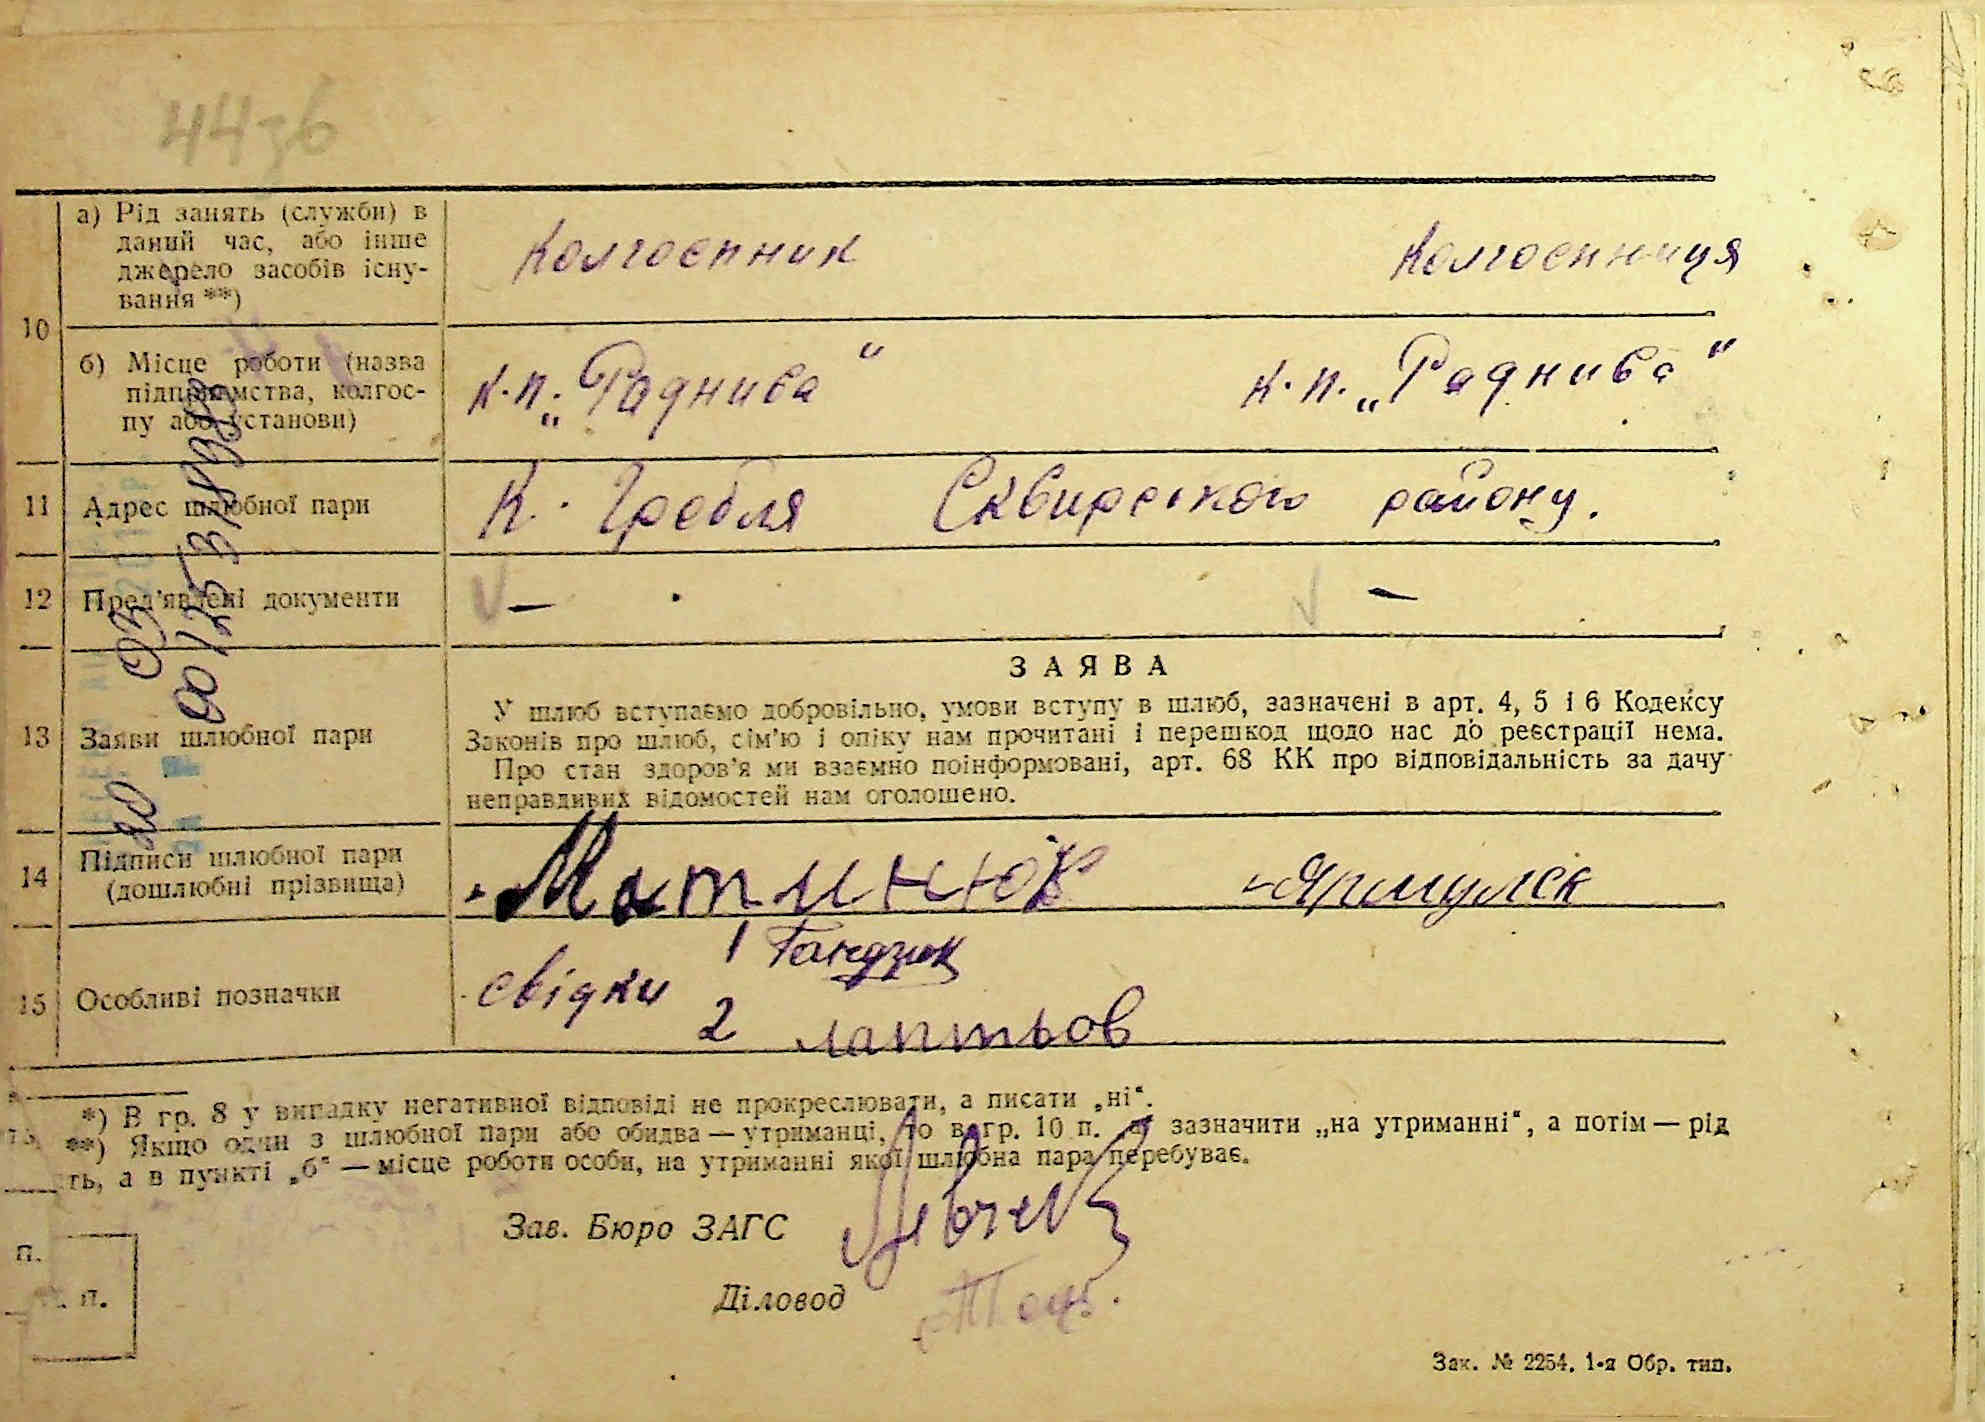 44зб
а) Рід занять (служби) в
даний час, або інше
джерело засобів існу-
вання **)
Колгоспник
Колгоспниця
10
б) Місце роботи (назва
підприємства, колгос-
пу або установи)
к.п. „Раднива“
к.п. „Раднива“
11
Адрес шлюбної пари
К. Гребля Сквирського району.
12
Пред'явлені документи
—
—
13
Заяви шлюбної пари
ЗАЯВА
У шлюб вступаємо добровільно, умови вступу в шлюб, зазначені в арт. 4, 5 і 6 Кодексу
Законів про шлюб, сім'ю і опіку нам прочитані і перешкод щодо нас до реєстрації нема.
Про стан здоров'я ми взаємно поінформовані, арт. 68 КК про відповідальність за дачу
неправдивих відомостей нам оголошено.
14
Підписи шлюбної пари
(дошлюбні прізвища)
Матинюк
15
Особливі позначки
свідки
1 Гандзюк
2 лаптьов
*) В гр. 8 у випадку негативної відповіді не прокреслювати, а писати „ні“.
**) Якщо один з шлюбної пари або обидва — утриманці, то в гр. 10 п. зазначити „на утриманні“, а потім — рід
ть, а в пункті „б“ — місце роботи особи, на утриманні якої шлюбна пара перебуває.
Зав. Бюро ЗАГС
Діловод
п.
п.
Зак. № 2254. 1-а Обр. тип.